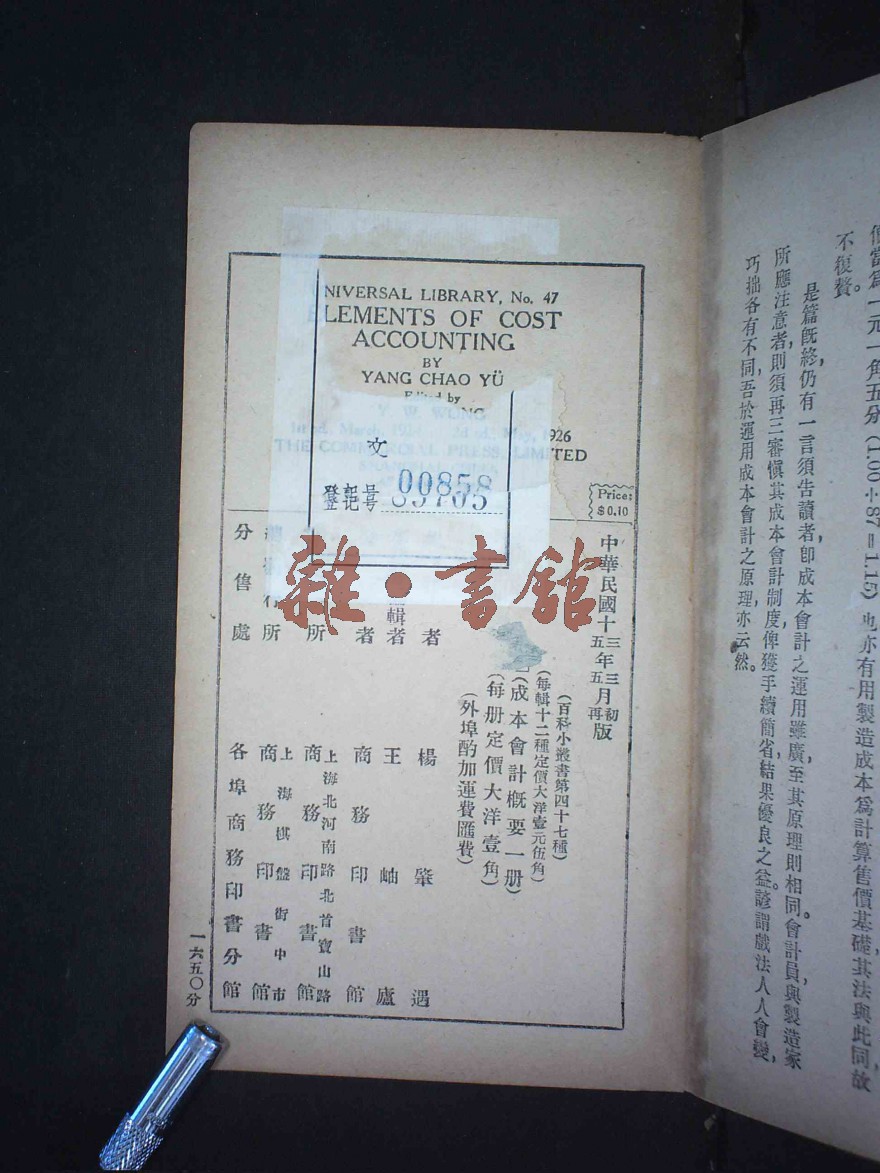 NIVERSAL LIBRARY, No. 47
LEMENTS OF COST
ACCOUNTING
BY
YANG CHAO YÜ
Edited by
Y. W. WONG
1st ed., March, 1924 2d ed., May, 1926
THE COMMERCIAL PRESS, LIMITED
文
登記号 00858
Price:
$0.10
雜·書館
中華民國十三年三月初版
五年五月再
(百科小叢書第四十七種)
(每輯十二種定價大洋壹元伍角)
(成本會計概要一册)
(每册定價大洋壹角)
(外埠酌加運費匯費)
者 楊肇遇
輯者 王岫廬
者 商務印書館
所 上海北河南路北首寶山路
商務印書館
所 上海棋盤街中市
商務印書館
分售處 各埠商務印書分館
一六五〇分
價當爲一元一角五分(100÷87=1.15)也亦有用製造成本爲計算售價基礎其法與此同故
不復贅。
是篇旣終,仍有一言須吿讀者,卽成本會計之運用雖廣,至其原理則相同。會計員與製造家
所應注意者,則須再三審愼其成本會計制度,俾獲手續簡省,結果優良之益。諺謂戲法人人會變,
巧拙各有不同,吾於運用成本會計之原理,亦云然。